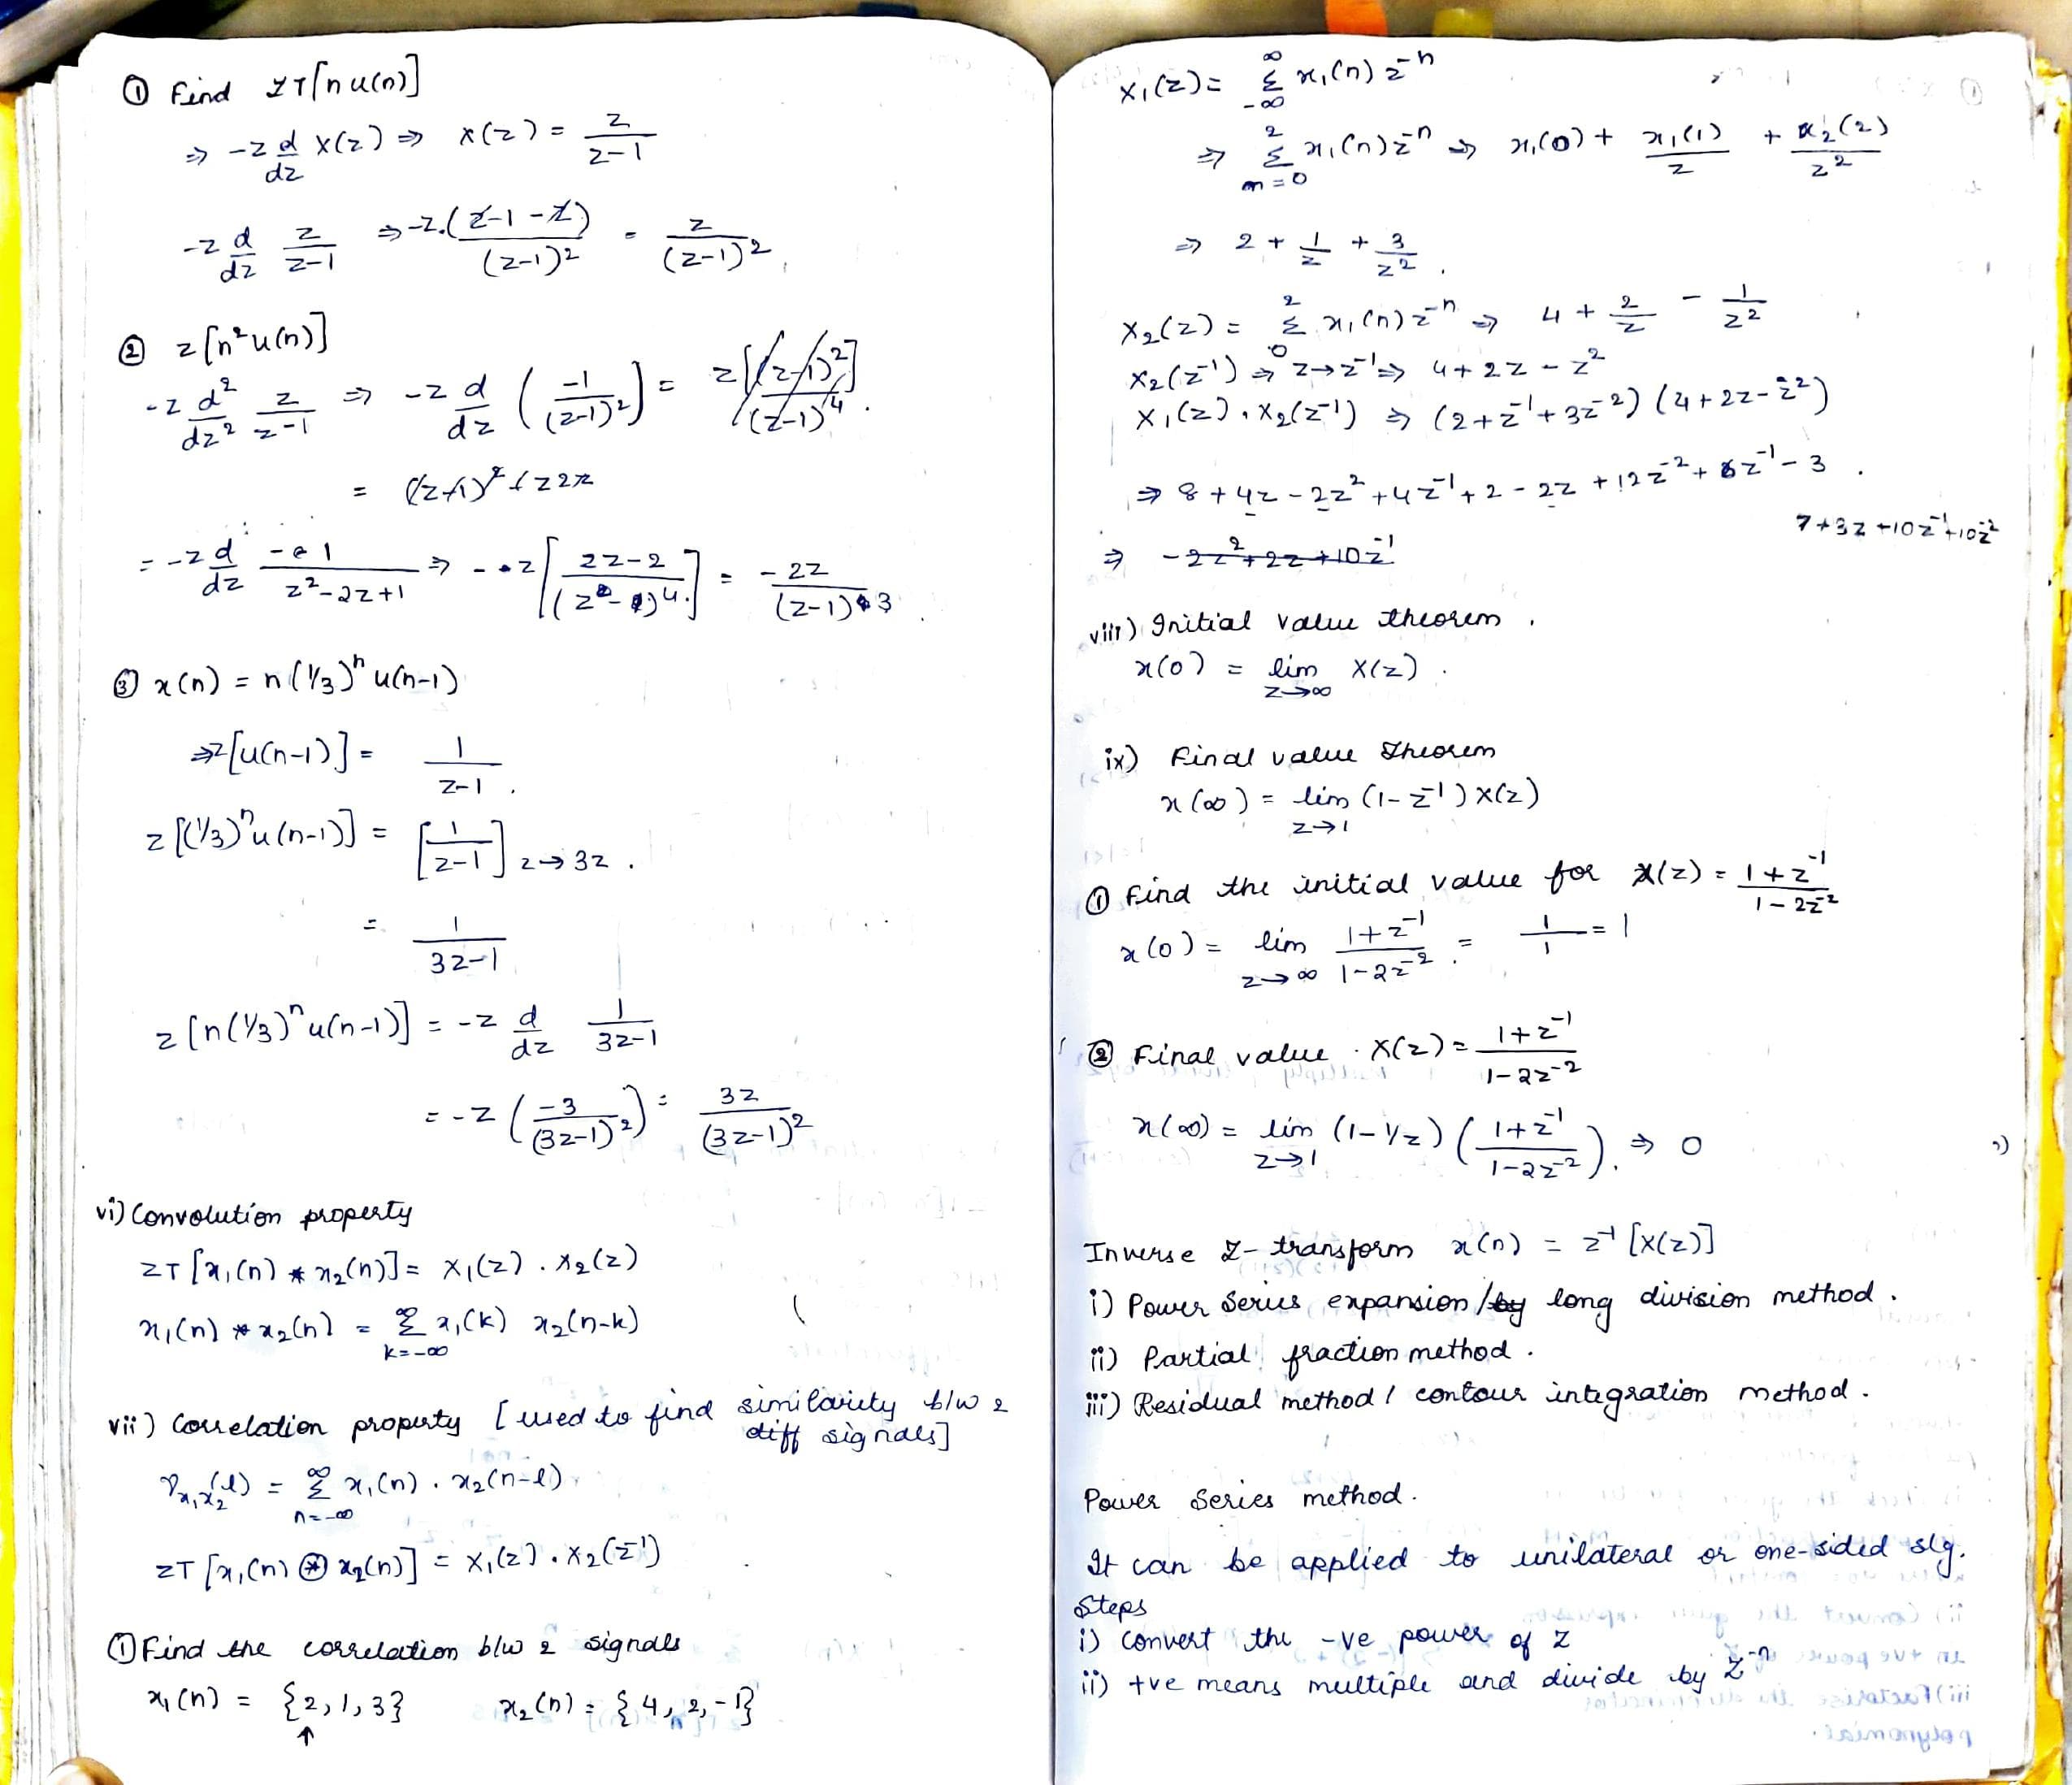 ① Find ZT[n u(n)]
⇒ -z d/dz X(z) ⇒ X(z) = z/(z-1)
-z d/dz z/(z-1) ⇒ -z.(z-1-z)/(z-1)² = z/(z-1)²
② z[n²u(n)]
-z d²/dz² z/(z-1) ⇒ -z d/dz (-1/(z-1)²) = z[(z-1)²]/(z-1)⁴.
= (z-1)² + z2z
= -z d/dz -1/(z²-2z+1) ⇒ - z[(2z-2)/(z-1)⁴] = -2z/(z-1)³
③ x(n) = n(1/3)ⁿ u(n-1)
⇒ z[u(n-1)] = 1/(z-1).
z[(1/3)ⁿu(n-1)] = [1/(z-1)] z→3z.
= 1/(3z-1)
z[n(1/3)ⁿu(n-1)] = -z d/dz 1/(3z-1)
= -z(-3/(3z-1)²) = 3z/(3z-1)²
vi) Convolution property
ZT[x₁(n) * x₂(n)] = X₁(z) . X₂(z)
x₁(n) * x₂(n) = Σ x₁(k) x₂(n-k)
∞
k=-∞
vii) Correlation property [used to find similarity b/w 2
diff signals]
r x₁x₂(l) = Σ x₁(n) . x₂(n-l)
∞
n=-∞
ZT[x₁(n) ⊛ x₂(n)] = X₁(z) . X₂(z⁻¹)
① Find the correlation b/w 2 signals
x₁(n) = {2, 1, 3} x₂(n) = {4, 2, -1}
↑
X₁(z) = Σ x₁(n) z⁻ⁿ
∞
-∞
⇒ Σ x₁(n) z⁻ⁿ ⇒ x₁(0) + x₁(1)/z + x₂(2)/z²
2
n=0
⇒ 2 + 1/z + 3/z².
X₂(z) = Σ x₁(n) z⁻ⁿ ⇒ 4 + 2/z - 1/z²
2
0
X₂(z⁻¹) ⇒ z→z⁻¹ ⇒ 4 + 2z - z²
X₁(z) . X₂(z⁻¹) ⇒ (2 + z⁻¹ + 3z⁻²) (4 + 2z - z²)
⇒ 8 + 4z - 2z² + 4z⁻¹ + 2 - 2z + 12z⁻² + 6z⁻¹ - 3.
7+3z+10z⁻¹+10z⁻²
⇒ -2z²+2z+10z⁻¹
viii) Initial value theorem.
x(0) = lim X(z).
z→∞
ix) Final value Theorem
x(∞) = lim (1-z⁻¹) X(z)
z→1
① Find the initial value for X(z) = (1+z⁻¹)/(1-2z⁻²)
x(0) = lim (1+z⁻¹)/(1-2z⁻²) = 1/1 = 1
z→∞
② Final value . X(z) = (1+z⁻¹)/(1-2z⁻²)
x(∞) = lim (1-1/z) ((1+z⁻¹)/(1-2z⁻²)). ⇒ 0
z→1
Inverse Z-transform x(n) = z⁻¹[X(z)]
i) Power Series expansion/by long division method.
ii) Partial fraction method.
iii) Residual method / contour integration method.
Power Series method.
It can be applied to unilateral or one-sided slg.
Steps
i) convert the -ve power of z
ii) +ve means multiple and divide by z⁻ⁿ